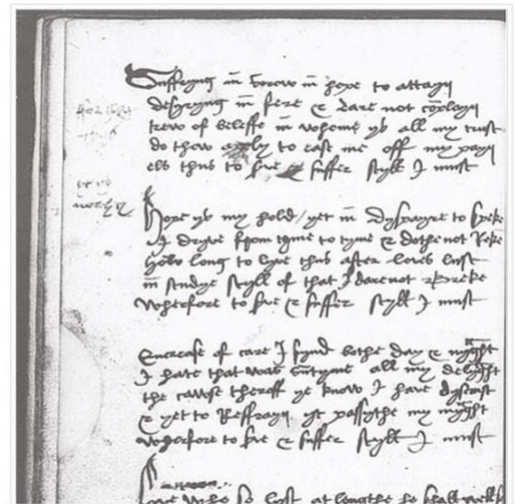 Suffryng in sorow in hope to attayn
desyryng in fere & dare not coplayn
trew of beleffe in whome ys all my trust
do thow apply to ease me off my payn
els thus to sve & suffer styll I must
yt ys
Hope ys my hold / yet in dyspayre to speke
I dryve from tyme to tyme & dothe not Reke
how long to lyve thus after loves lust
in studye styll of that I dare not breke
wherfore to sve & suffer styll I must
Encrease of care I fynd bothe day & nyght
I hate that was sutyme all my delyght
the cawse theroff ye know I have dyscust
& yet to Reffrayn yt passythe my myght
wherfore to sve & suffer styll I must
love who so lyst at lengthe he shall well